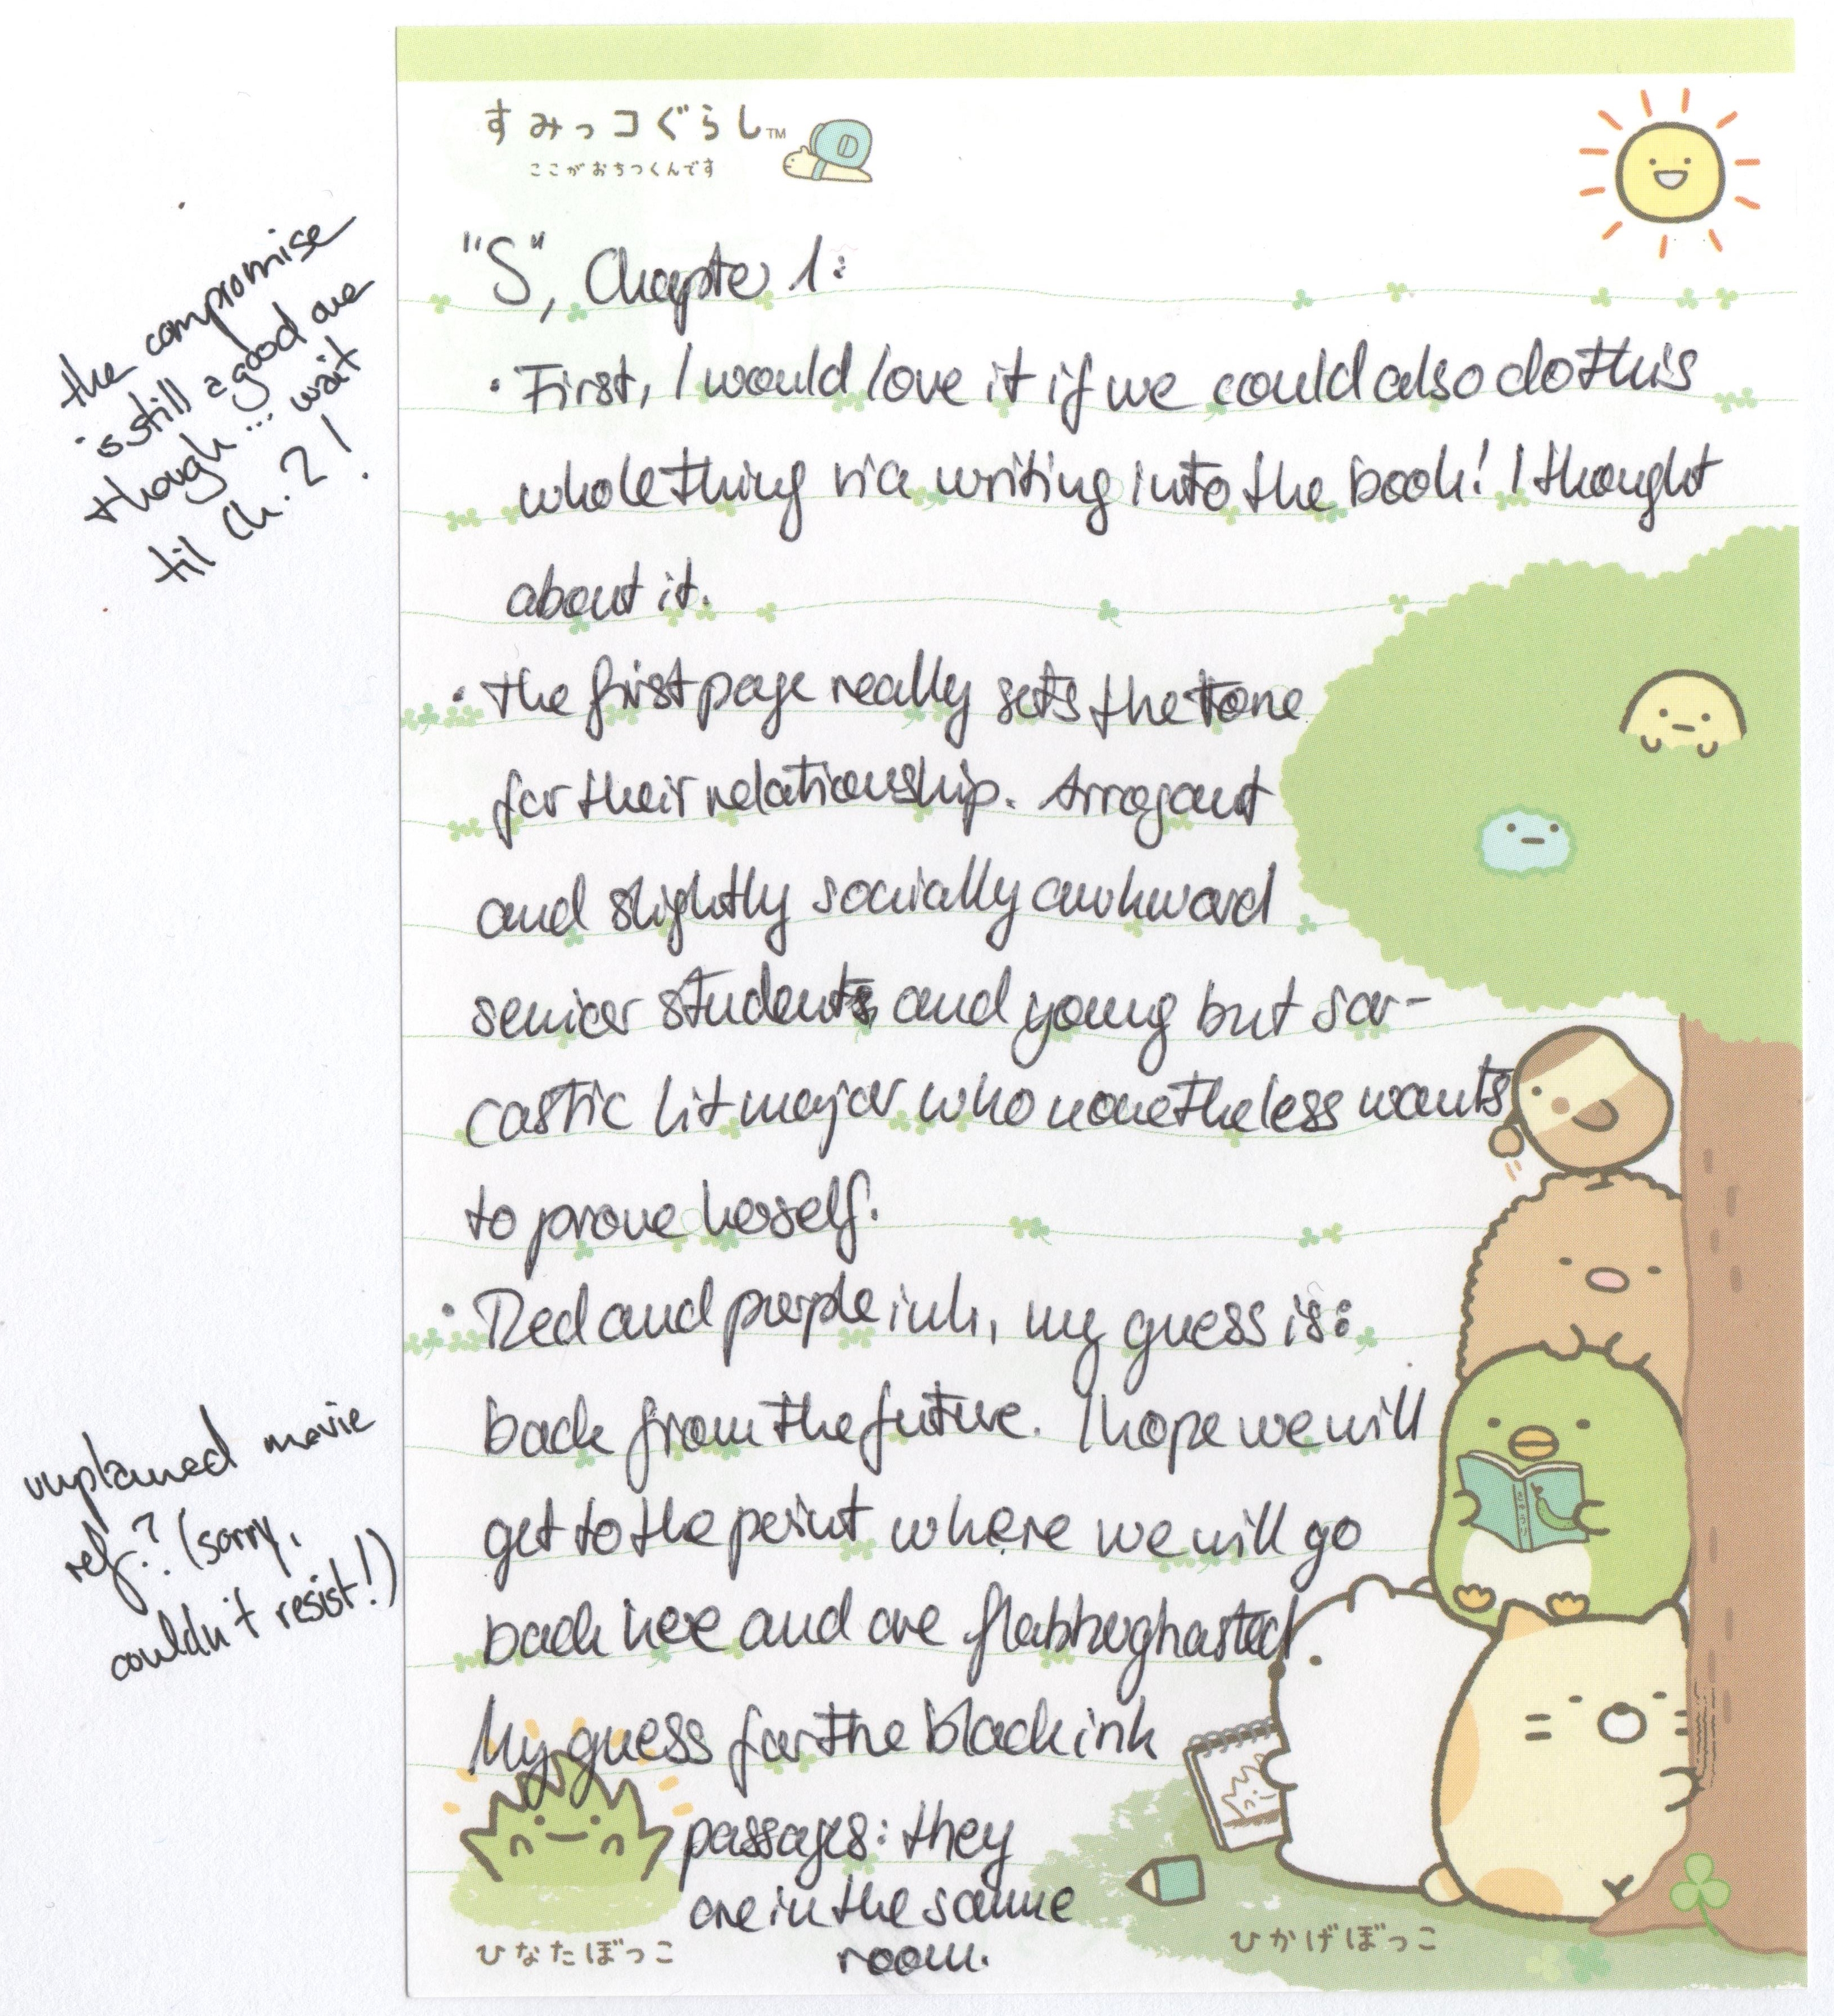 すみっコぐらし™
ここがおちつくんです
"S", Chapter 1:
• First, I would love it if we could also do this
whole thing via writing into the book! I thought
about it.
• The first page really sets the tone
for their relationship. Arrogant
and slightly socially awkward
senior student and young but sar-
castic lit major who nonetheless wants
to prove herself.
• Red and purple ink, my guess is:
back from the future. I hope we will
get to the point where we will go
back here and are flabberghasted
My guess for the black ink
passages: they
are in the same
room.
ひなたぼっこ
ひかげぼっこ
the compromise
is still a good one
though... wait
til Ch. 2!
movie
ref? (sorry,
couldn't resist!)